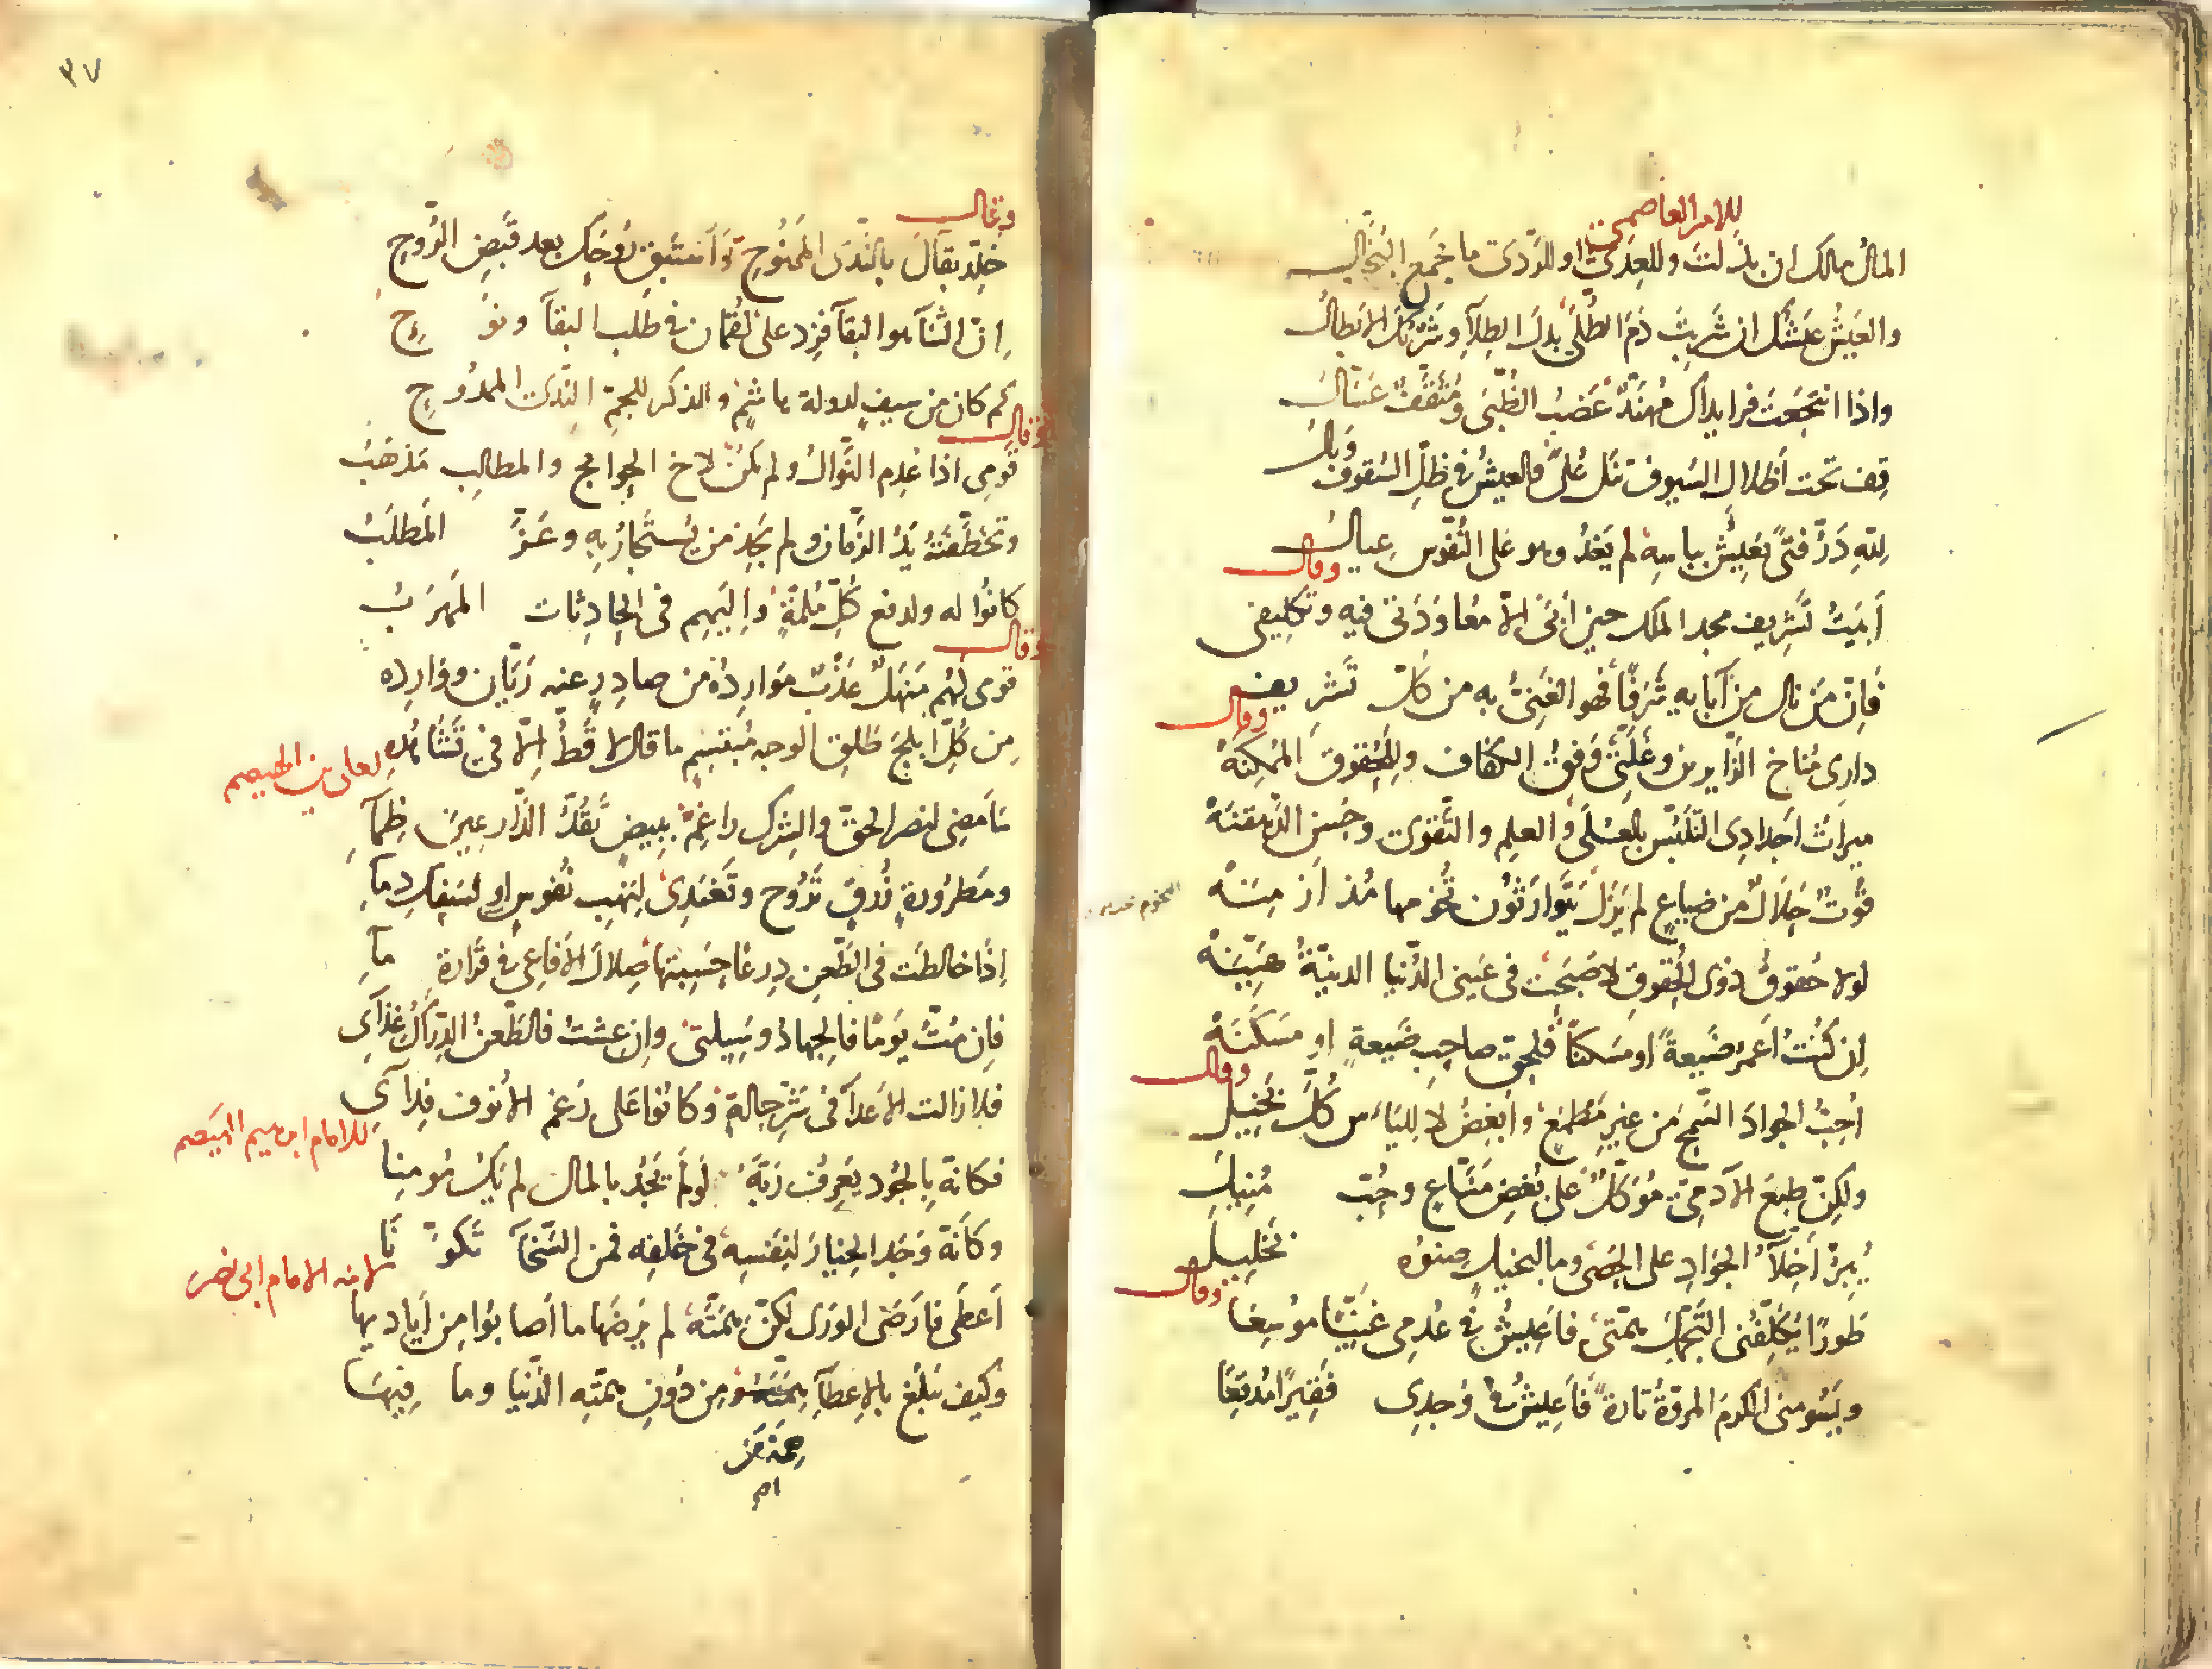 للامير العاصمي
المالُ مالك ان بذلتَ وللعِدَى او للرَّدى ما يجمع البَخّال
والعَيشُ عَيشك ان شربتَ دَمَ الطُّلَى بدل الطِلآءِ وشَرْبُك الابطالُ
واذا انتجعتَ فرايداك مهنّدٌ عَضبُ الظُّبَى ومُثقَّفٌ عَسّالُ
قِف تحت أظلال السيوف تنل عُلىً فالعيشُ في ظلّ السقوف وَبالُ
لله دَرُّ فتًى يعيشُ بباسِه لم يَغدُ وهو على النُّفوس عيال
وقال
أبيتُ تشريف مجد الملك حين أبَى الاّ مُعاوَدَتي فيه وتكليفي
فانّ مَن نال من آبايه شَرفًا فهو الغَنِيُّ به من كلّ تشريف
وقال
داري مُناخ الزّايرين وغلّتي وَفقُ الكفاف وللحقوق المُمكِنَهْ
ميراثُ اجدادي التلبّس بالعُلَى والعلم والتّقوى وحُسن الدّهقنَهْ
قُوتٌ حلالٌ من ضياعٍ لم يَزل يتوارثُون تُخومها مُذ ازمِنَهْ
لولا حُقوقُ ذوي الحُقوق لاصبحت في عَيني الدُّنيا الدنيّةُ هَيّنَهْ
إن كُنتُ أعمرُ ضَيعةً او مَسكنًا فلحقّ صاحب ضَيعةٍ او مَسكَنَهْ
وقال
أحِبُّ الجوادَ السَّمحَ من غير مَطمعٍ وأبغضُ لا لليَاس كلَّ بَخيل
ولكنّ طبعَ الآدميّ مُوَكّلٌ على بُغضِ مَنّاعٍ وحُبّ مُنيل
يُبِرُّ أخلآءُ الجوادِ على الحصَى وما للبخيل صنوُه بخليل
وقال
طَورًا يُكلّفُني التَّجمُّلَ همّتي فأعيشُ في عُدمي غنيًّا مُوسِعا
ويَسُومني الكرمُ المروّةُ تارةً فأعيشُ في وُجدي فقيرًا مُدقِعا
٣٧
وقال
خلّد بقآك بالنَّدَى الممنُوحِ وَاستبقِ رُوحَك بعد قَبضِ الرُّوحِ
إنّ الثنآ هو البقآ فزِد على لقمان في طلب البقآ ونُوحِ
كم كان من سيفٍ لدولة هاشمٍ والذكر للجمّ النّدى الممدُوحِ
وقال
قومي اذا عُدِم النَّوالُ ولم يكن لاخ الحوائج والمطالب مَذهَبُ
وتخطّفَتهُ يَدُ الزَّمان ولم يَجِد من يُستجارُ بِهِ وعَزَّ المَطلَبُ
كانُوا له ولدفع كلّ مُلمّةٍ واليهِم في الحادِثات المَهرَبُ
وقال
قومي لهُم مَنهلٌ عَذبٌ مَوارِدُه من صادِرٍ عنه رَيّانٍ ووارِدِه
مِن كُلّ ابلجَ طَلِق الوجه مُبتسِمٍ ما قال لا قَطُّ إلاّ في تَشهُّدِه
لعلى بن الهيصم
سامضي لنصر الحقّ والشرك راغمٌ ببِيضٍ تَقُدّ الدّارعين ظِمآءِ
ومَطرُورةٍ زُرقٍ تَرُوح وتَغتدي لنهب نُفوسٍ او لسَفكِ دمآءِ
إذا خالطَت في الطّعن درعًا حسِبتها صِلال الأفاعي في قرارة مآءِ
فإن مُتُّ يَومًا فالجهادُ وسيلتي وإن عشتُ فالطّعنُ الدِّراكُ غذآئي
فلا زالت الاعدآ في شرّ حالةٍ وكانوا على رَغم الأنوف فِدآئي
للامام ابرهيم الهيصم
فكانّه بالجُود يَعرفُ ربَّهُ لو لم يَجُد بالمال لم يَكُ مُومِنا
وكأنّه وَجَد الخيارَ لنفسِه في خَلقِه فمن السَّخآ تكوّنا
لابنه الامام ابي نصر
أعطَى فارضَى الورى لكنّ همّتَه لم يُرضها ما أصابُوا مِن أياديها
وكيف يبلغ بالإعطآ همّته ومِن دُونِ همّتِه الدُّنيا وما فيها